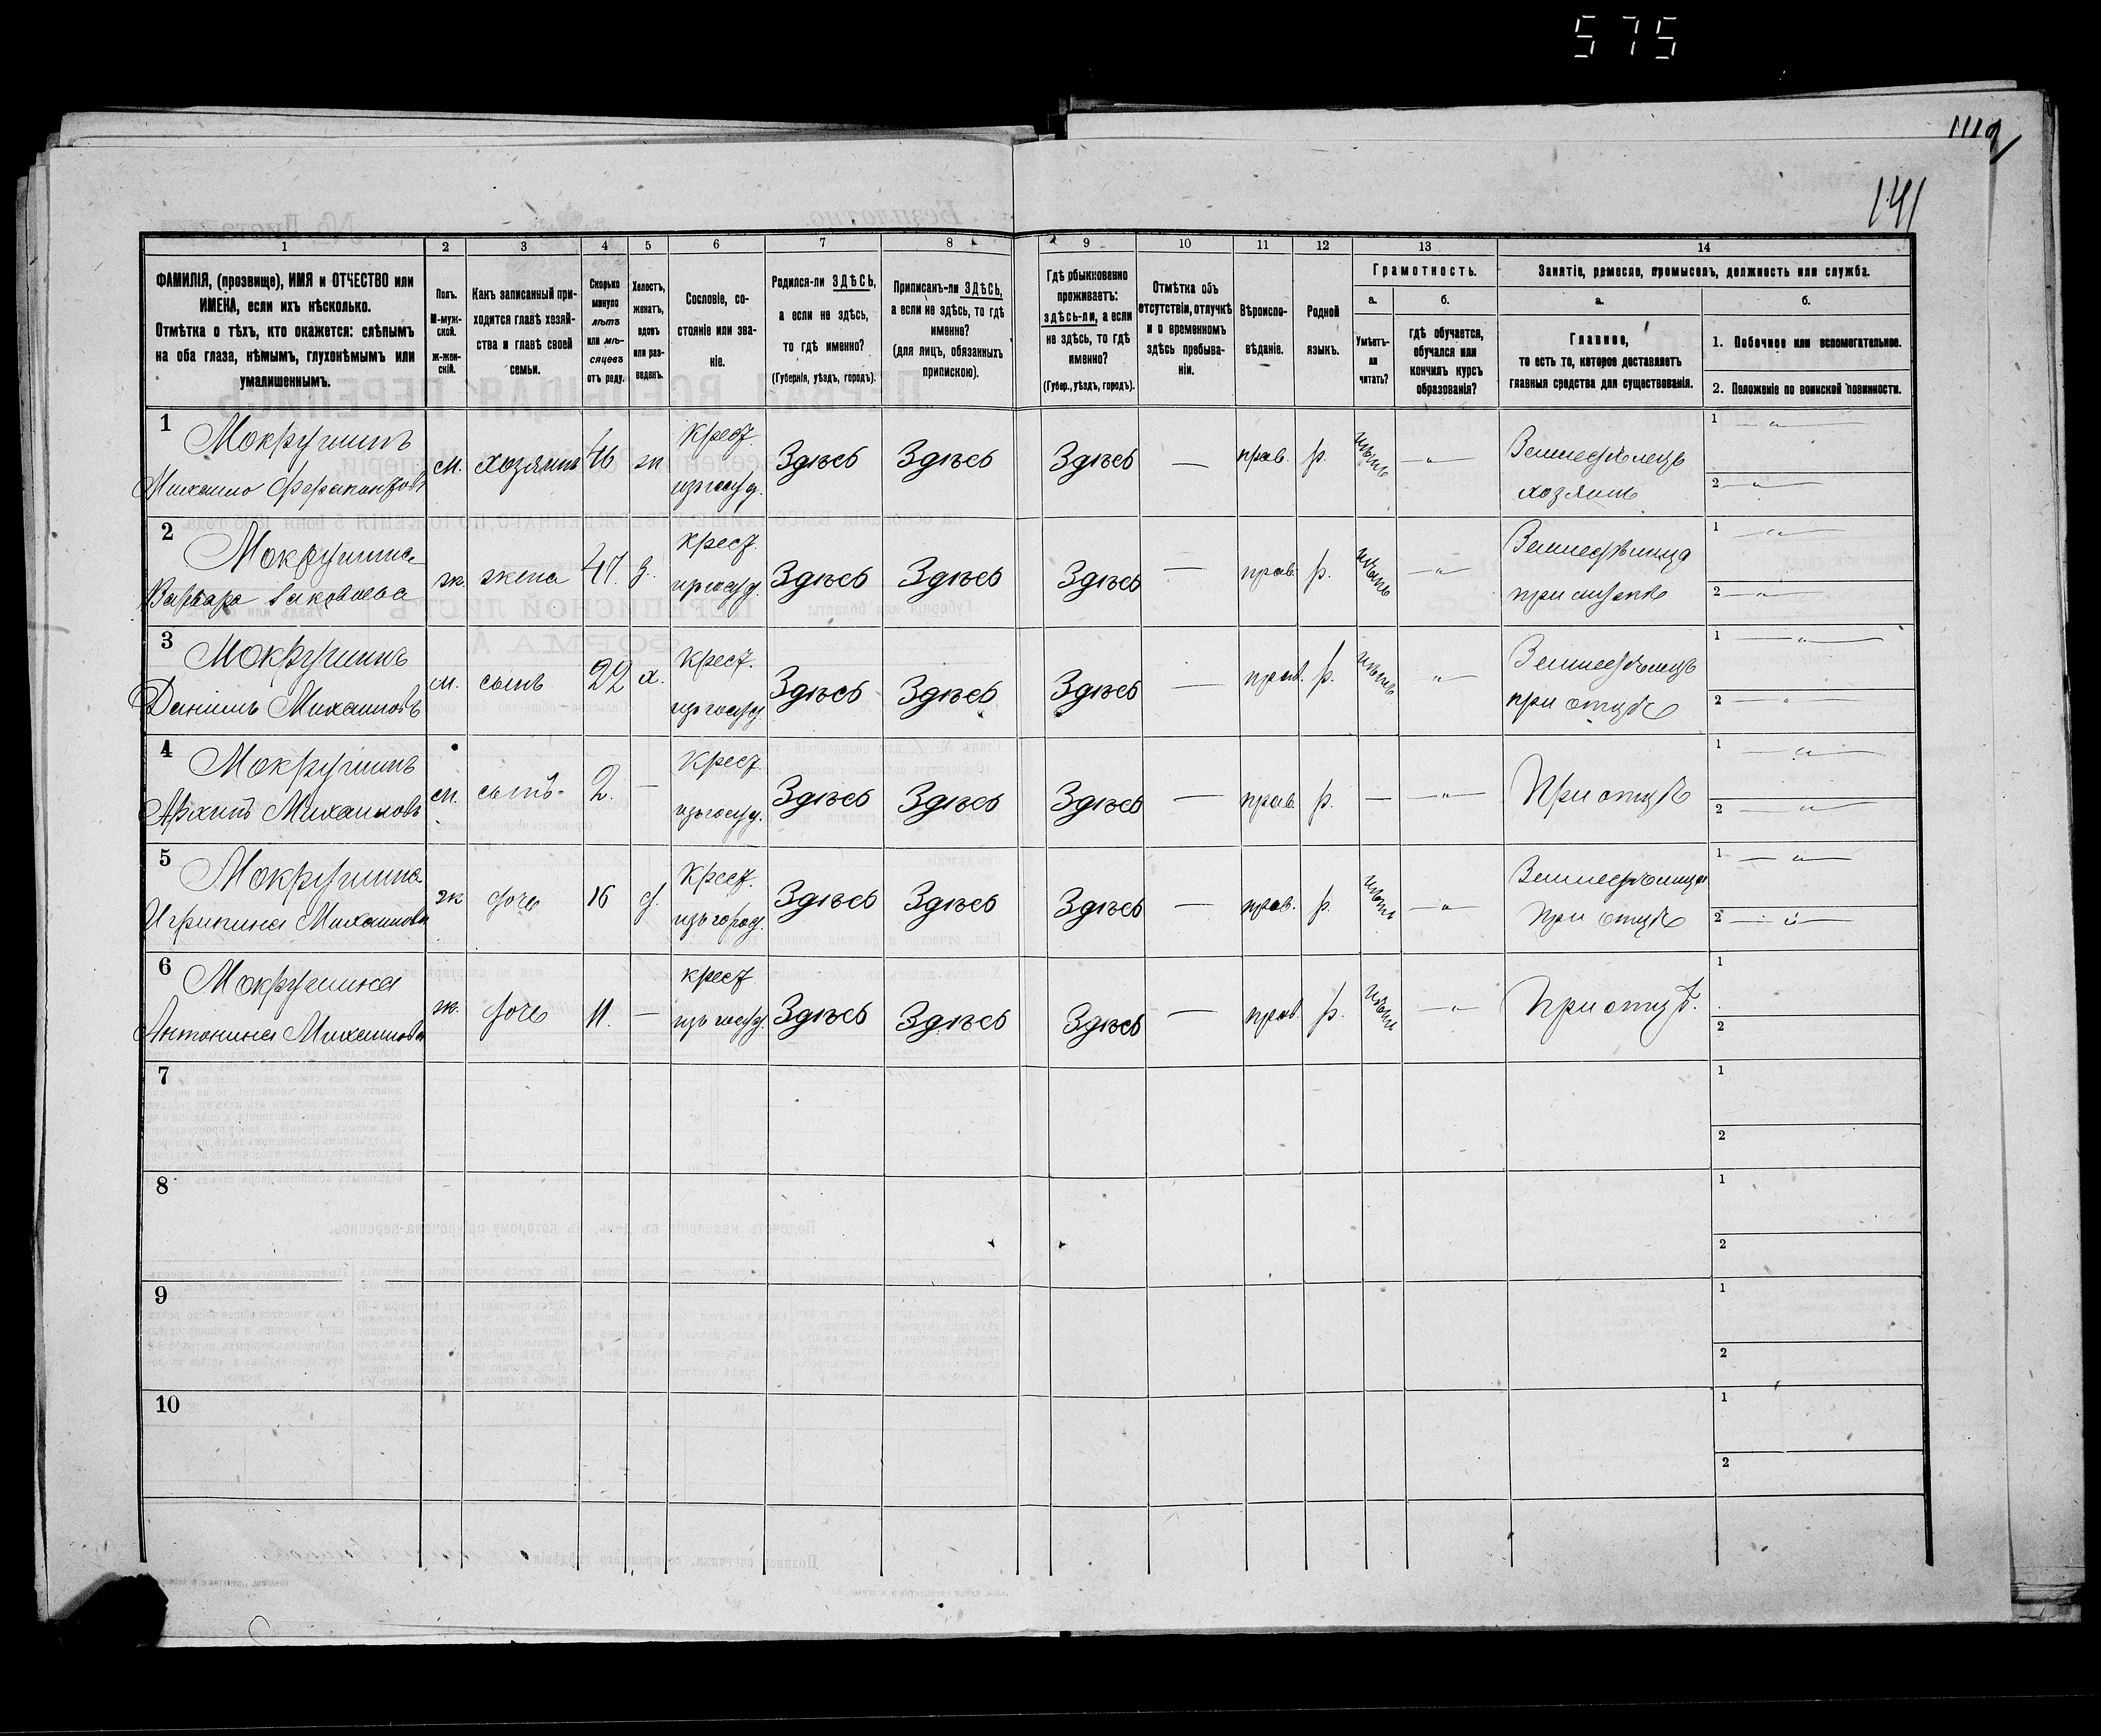 575
1112
141
1 2 3 4 5 6 7 8 9 10 11 12 13 14
ФАМИЛІЯ, (прозвище), ИМЯ и ОТЧЕСТВО или
ИМЕНА, если ихъ нѣсколько.
Отмѣтка о тѣхъ, кто окажется: слѣпымъ
на оба глаза, нѣмымъ, глухонѣмымъ или
умалишеннымъ.
Полъ.
М-муж-
ской.
ж-жен-
скій.
Какъ записанный при-
ходится главѣ хозяй-
ства и главѣ своей
семьи.
Сколько
минуло
лѣтъ
или мѣ-
сяцевъ
отъ роду.
Холостъ,
женатъ,
вдовъ
или раз-
веденъ.
Сословіе, со-
стояніе или зва-
ніе.
Родился-ли ЗДѢСЬ,
а если не здѣсь,
то гдѣ именно?
(Губернія, уѣздъ, городъ).
Приписанъ-ли ЗДѢСЬ,
а если не здѣсь, то гдѣ
именно?
(для лицъ, обязанныхъ
припискою).
Гдѣ обыкновенно
проживаетъ:
здѣсь-ли, а если
не здѣсь, то гдѣ
именно?
(Губер., уѣздъ, городъ).
Отмѣтка объ
отсутствіи, отлучкѣ
и о временномъ
здѣсь пребыва-
ніи.
Вѣроиспо-
вѣданіе.
Родной
языкъ.
Грамотность.
а.
Умѣетъ-
ли
читать?
б.
гдѣ обучается,
обучался или
кончилъ курсъ
образованія?
Занятіе, ремесло, промыселъ, должность или служба.
а.
Главное,
то есть то, которое доставляетъ
главныя средства для существованія.
б.
1. Побочное или вспомогательное.
2. Положеніе по воинской повинности.
1 Мокрушинъ
Михаило
м. хозяинъ 46 ж Крест. Здѣсь Здѣсь Здѣсь — прав. р. нѣтъ — " — Земледѣлецъ
хозяинъ
1 — " —
2 — " —
2 Мокрушина
Варвара Яковлева
ж. жена 47. з. крест. Здѣсь Здѣсь Здѣсь — прав. р. нѣтъ — " —
1 — " —
2 — " —
3 Мокрушинъ
Даніилъ Михаиловъ
м. сынъ 22 х. Крест. Здѣсь Здѣсь Здѣсь — прав. р. нѣтъ — " — Земледѣлецъ
при отцѣ
1 — " —
2 — " —
4 Мокрушинъ
Архипъ Михаиловъ
м. сынъ 2. — Крест. Здѣсь Здѣсь Здѣсь — прав. р. — — " — При отцѣ
1 — " —
2 — " —
5 Мокрушина
Агрипина Михаилова
ж дочь 16 д. Крест. Здѣсь Здѣсь Здѣсь — прав. р. нѣтъ — " —
при отцѣ
1 — " —
2 — " —
6 Мокрушина
Антонина Михаилова
ж. дочь 11. — крест Здѣсь Здѣсь Здѣсь — прав. р. нѣтъ — " — При отцѣ.
1
2
7
1
2
8
1
2
9
1
2
10
1
2